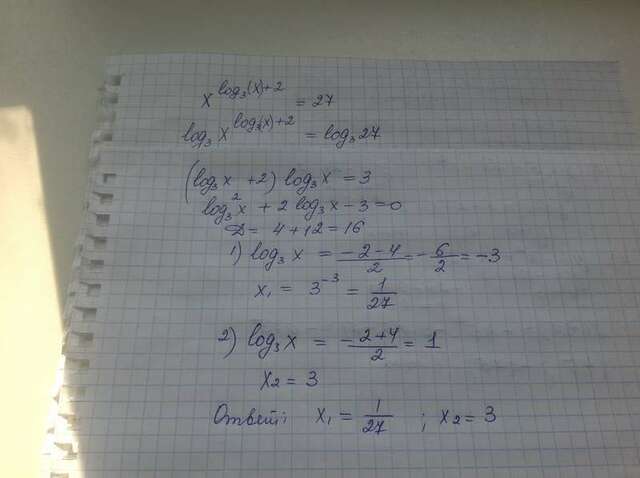 x^(log₃(x)+2) = 27
log₃ x^(log₃(x)+2) = log₃ 27
(log₃x + 2) log₃x = 3
log₃²x + 2 log₃x - 3 = 0
D = 4 + 12 = 16
1) log₃x = (-2-4)/2 = -6/2 = -3
x₁ = 3⁻³ = 1/27
2) log₃x = (-2+4)/2 = 1
x₂ = 3
Ответ: x₁ = 1/27 ; x₂ = 3